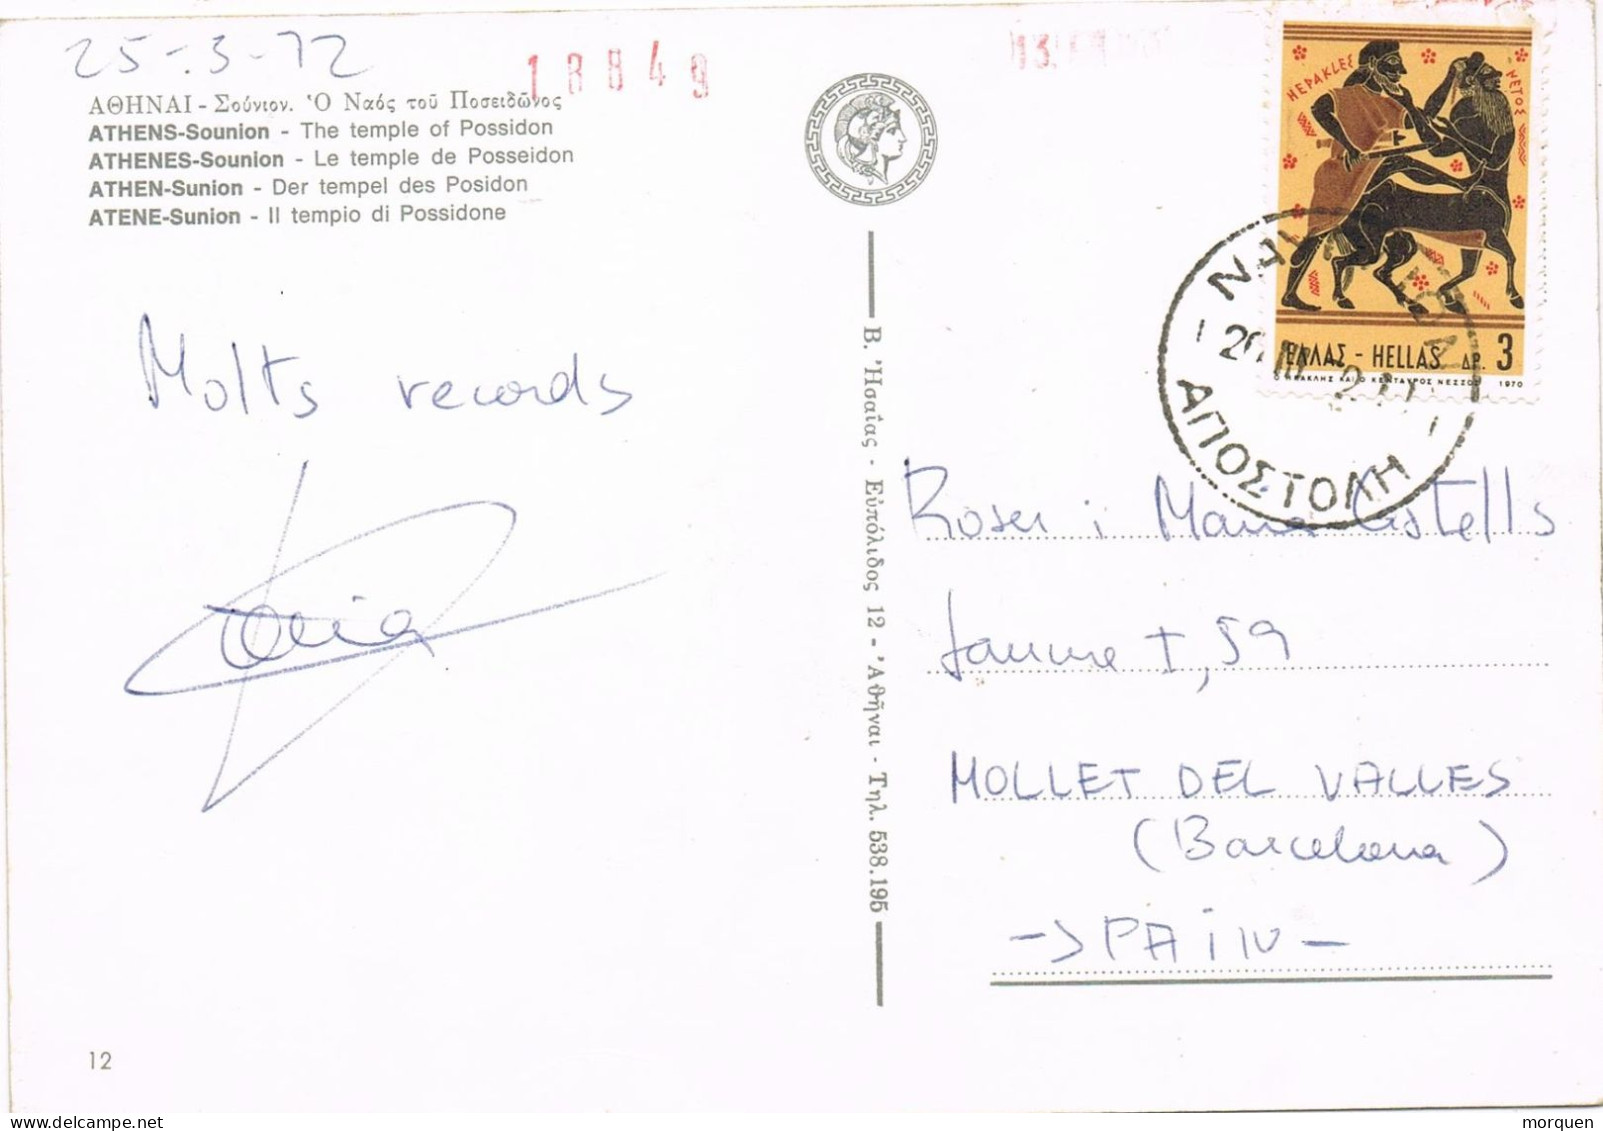 25-3-72
18849
ΑΘΗΝΑΙ - Σούνιον. Ὁ Ναός τοῦ Ποσειδῶνος
ATHENS-Sounion - The temple of Possidon
ATHENES-Sounion - Le temple de Posseidon
ATHEN-Sunion - Der tempel des Posidon
ATENE-Sunion - Il tempio di Possidone
Molts records
12
Β. Ἠσαΐας - Εὐπόλιδος 12 - Ἀθῆναι - Τηλ. 538.195
ΗΕΡΑΚLΕΣ
ΝΕΤΟΣ
ΕΛΛΑΣ - HELLAS ΔΡ. 3
Ο ΗΡΑΚΛΗΣ ΚΑΙ Ο ΚΕΝΤΑΥΡΟΣ ΝΕΣΣΟΣ 1970
ΑΠΟΣΤΟΛΗ
Roser i Maria Castells
Jaume I, 59
MOLLET DEL VALLES
(Barcelona)
- SPAIN -
morquen